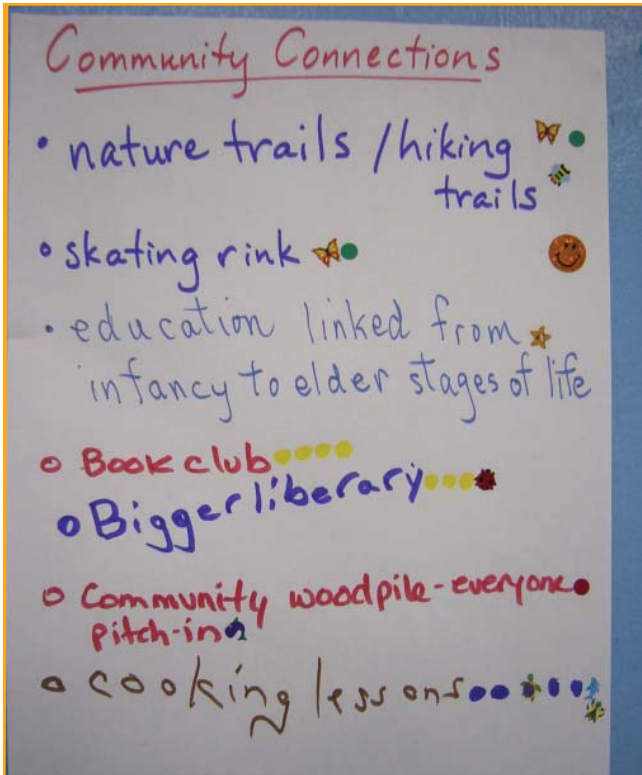 Community Connections
• nature trails / hiking
trails
• skating rink
• education linked from
infancy to elder stages of life
o Book club
o Bigger liberary
o Community woodpile - everyone
pitch-in
o cooking lessons